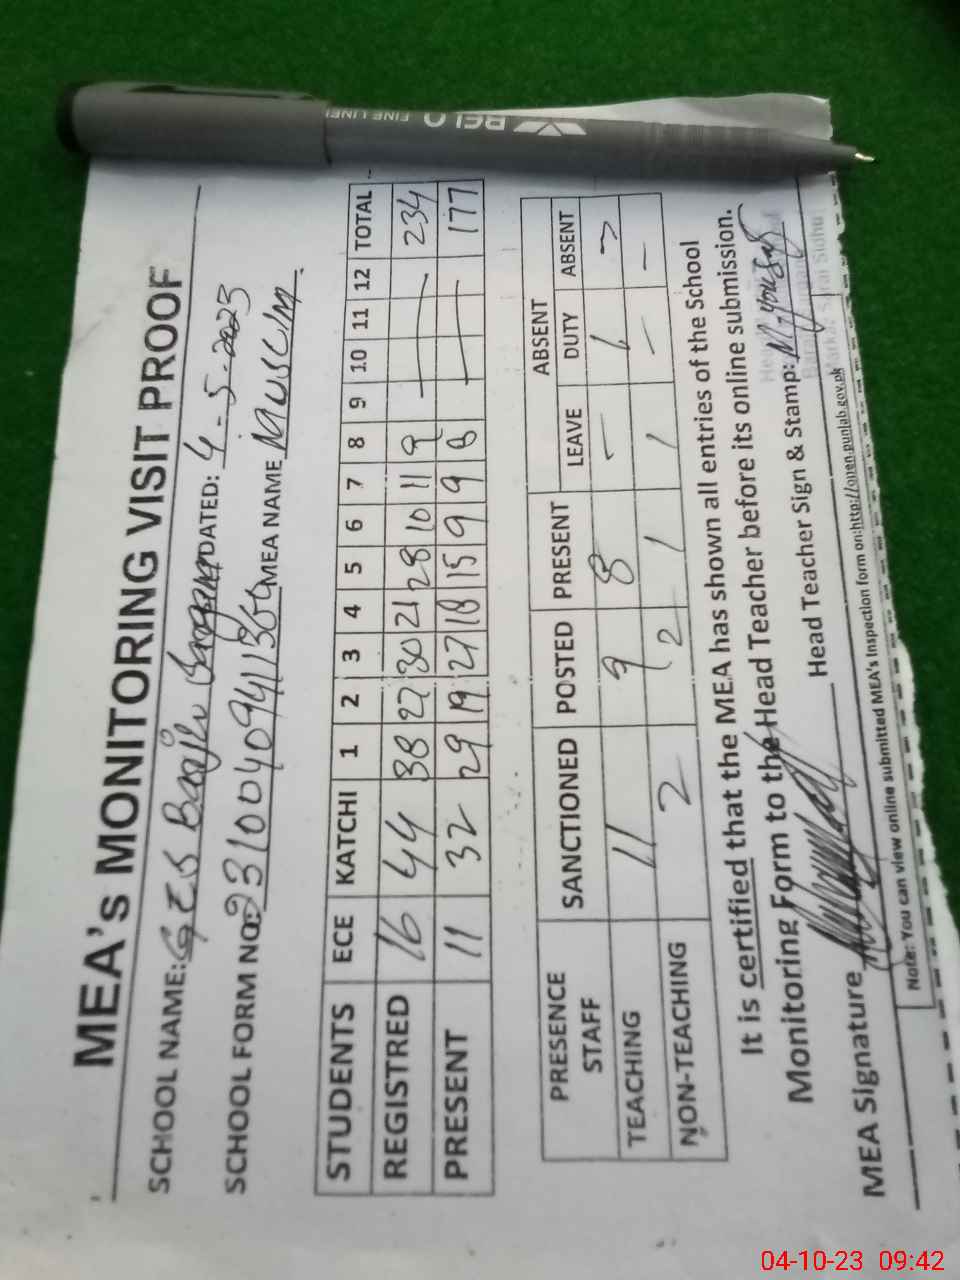 RELO FINE LINER
MEA's MONITORING VISIT PROOF
SCHOOL NAME: GES DATED: 4-5-2023
SCHOOL FORM NO: MEA NAME MUSLIM
STUDENTS ECE KATCHI 1 2 3 4 5 6 7 8 9 10 11 12 TOTAL
REGISTRED 16 44 38 27 30 21 28 10 11 9 — 234
PRESENT 11 32 29 19 27 18 15 9 9 8 — 177
PRESENCE STAFF SANCTIONED POSTED PRESENT LEAVE ABSENT DUTY ABSENT
TEACHING 11 9 8 – 1 –
NON-TEACHING 2 2 1 1 – –
It is certified that the MEA has shown all entries of the School
Monitoring Form to the Head Teacher before its online submission.
MEA Signature Head Teacher Sign & Stamp: M. Yousaf
Markaz Sarai Sidhu
Note: You can view online submitted MEA's Inspection form on:http://open.punjab.gov.pk
04-10-23 09:42